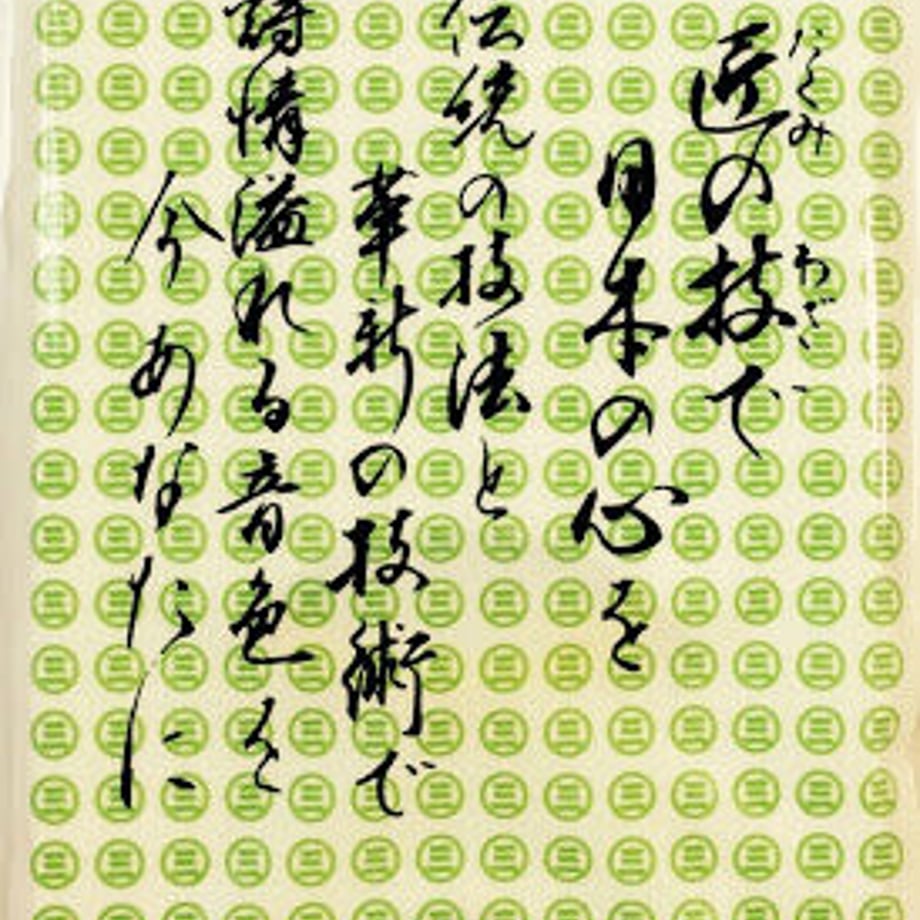 匠の技で
たくみ
わざ
日本の心を
伝統の技法と
革新の技術で
詩情溢れる音色を
今あなたに